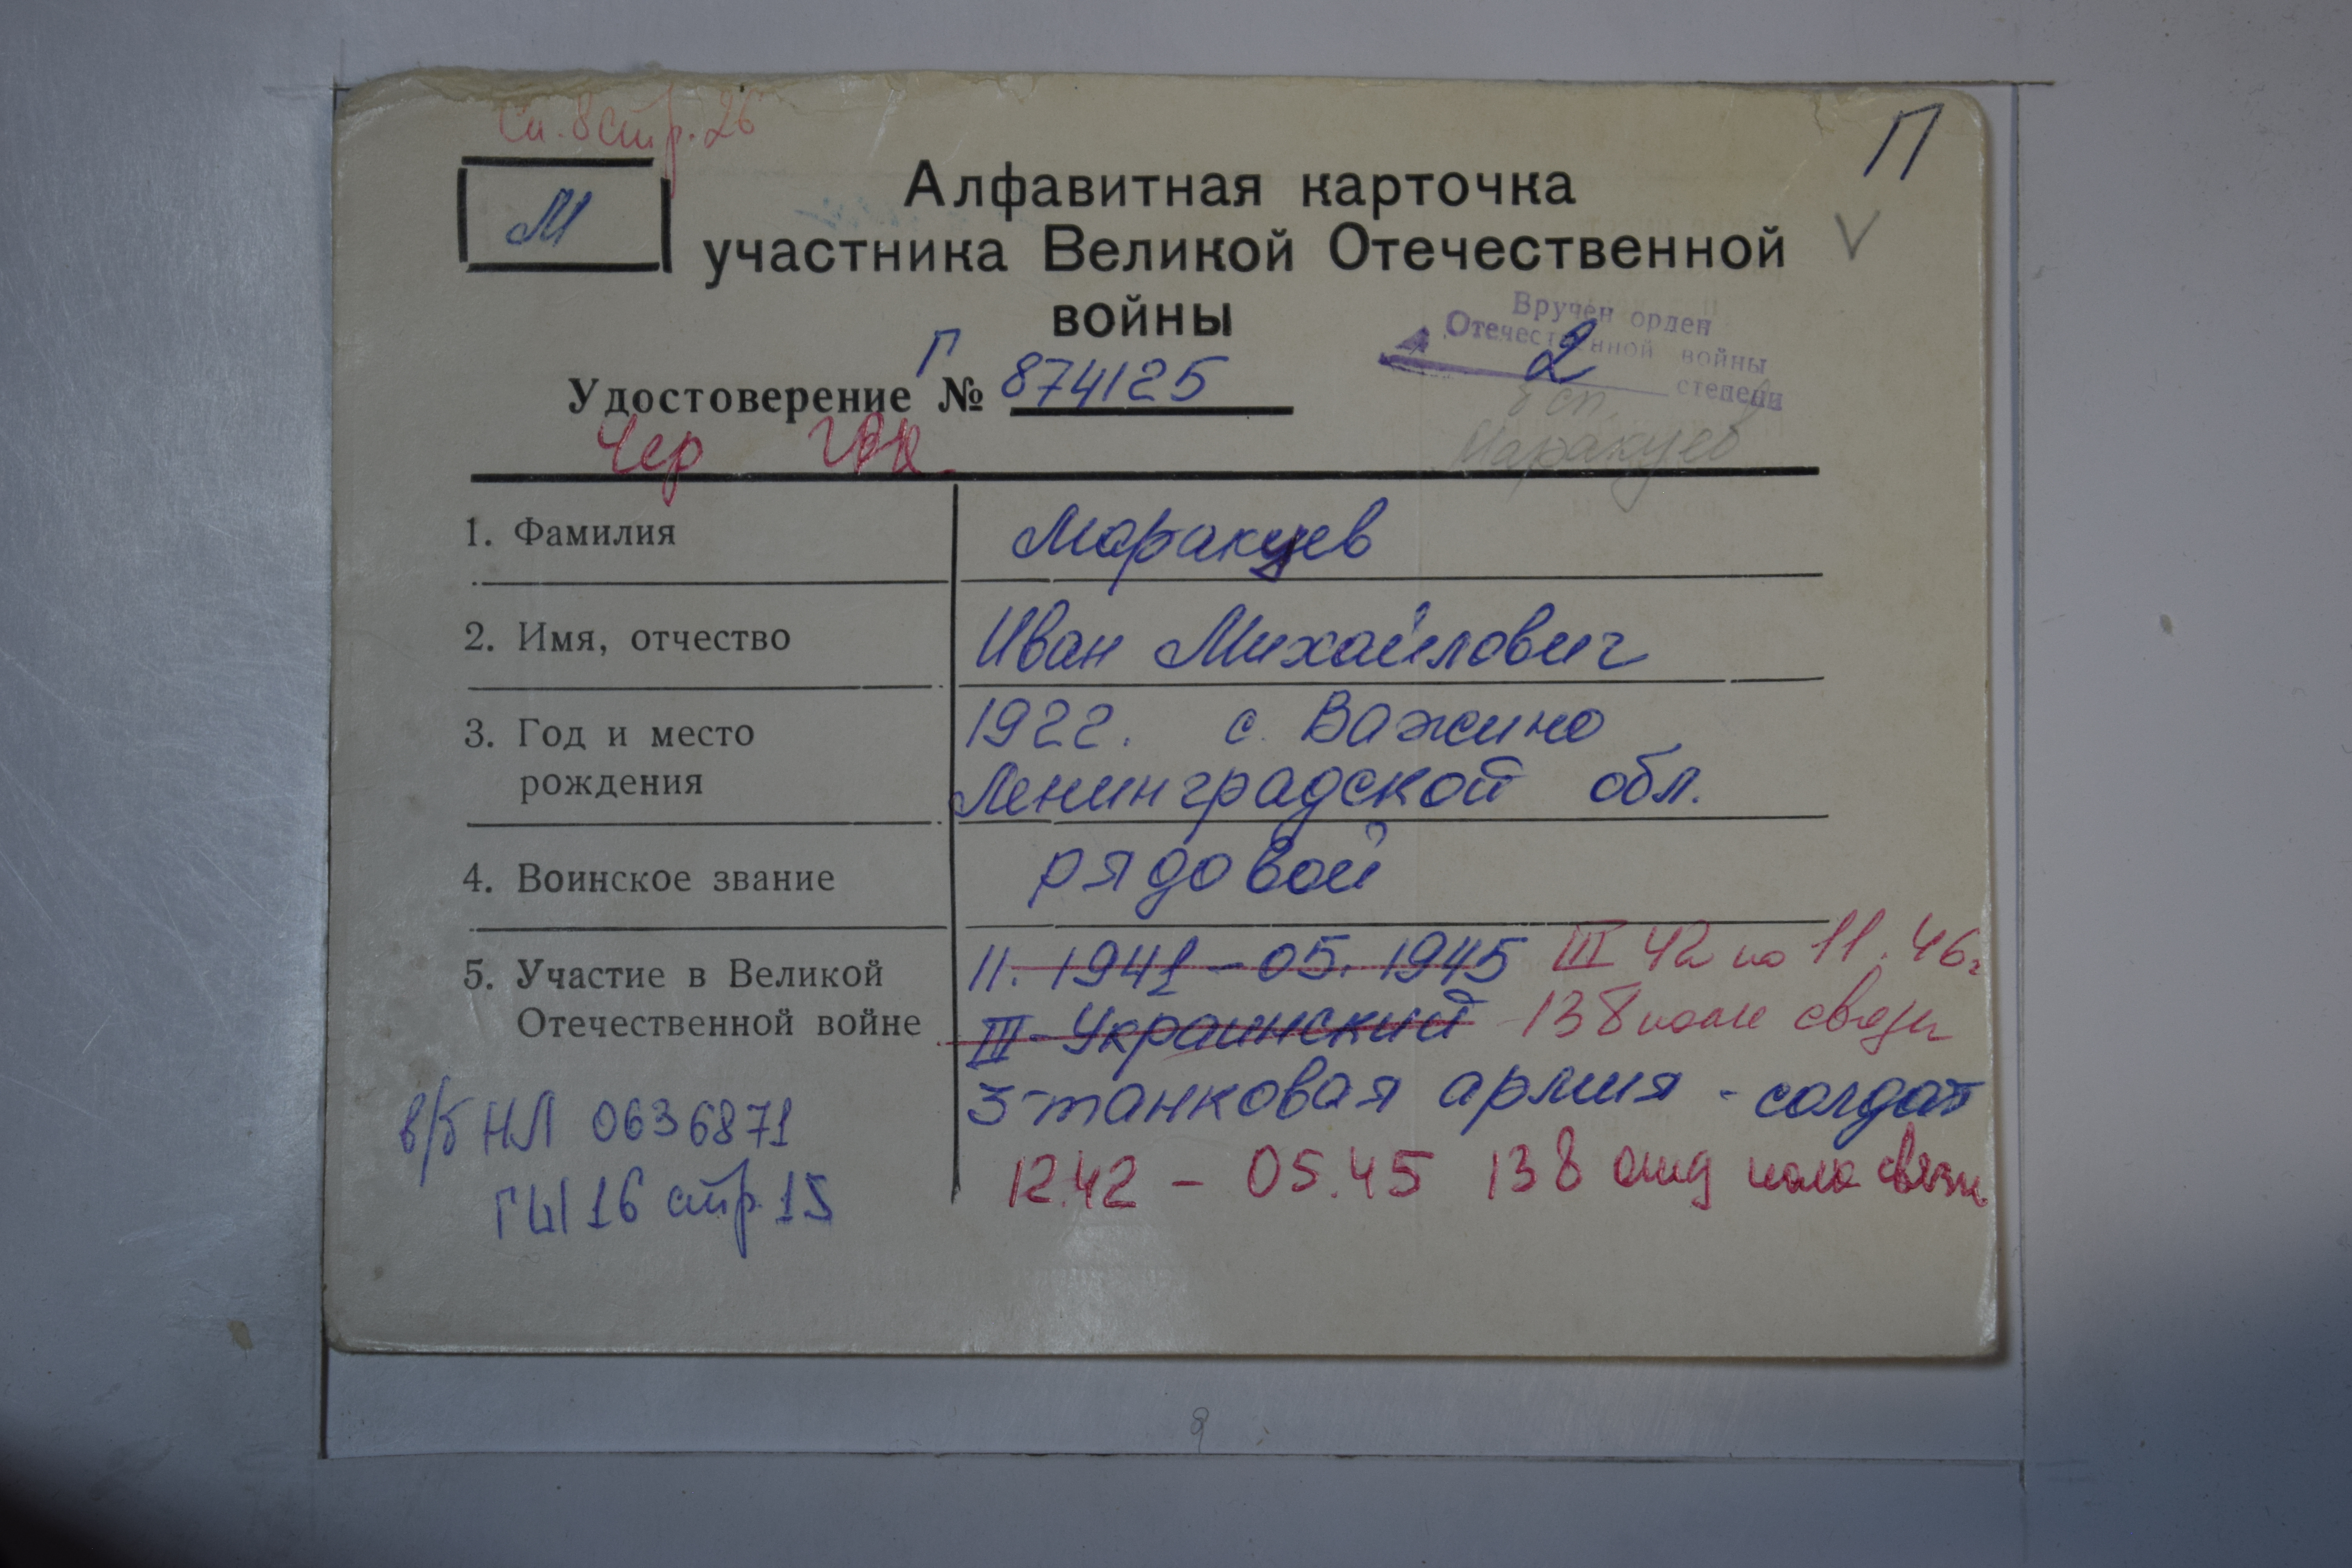 Сп. 8 стр. 26
П
М
Алфавитная карточка
участника Великой Отечественной
войны
V
Вручен орден
Отечественной войны
2 степени
Удостоверение Г № 874125
Маракуев
Чер
1. Фамилия Маракуев
2. Имя, отчество Иван Михайлович
3. Год и место рождения
1922. с. Важино
Ленинградской обл.
4. Воинское звание рядовой
5. Участие в Великой Отечественной войне
11. 1941 - 05. 1945 III 42 по 11. 46г
III-Украинский 138 полк связи
3-танковая армия - солдат
12.42 - 05.45 138 отд полк связи
в/б НЛ 0636871
ГЫ 16 стр. 15